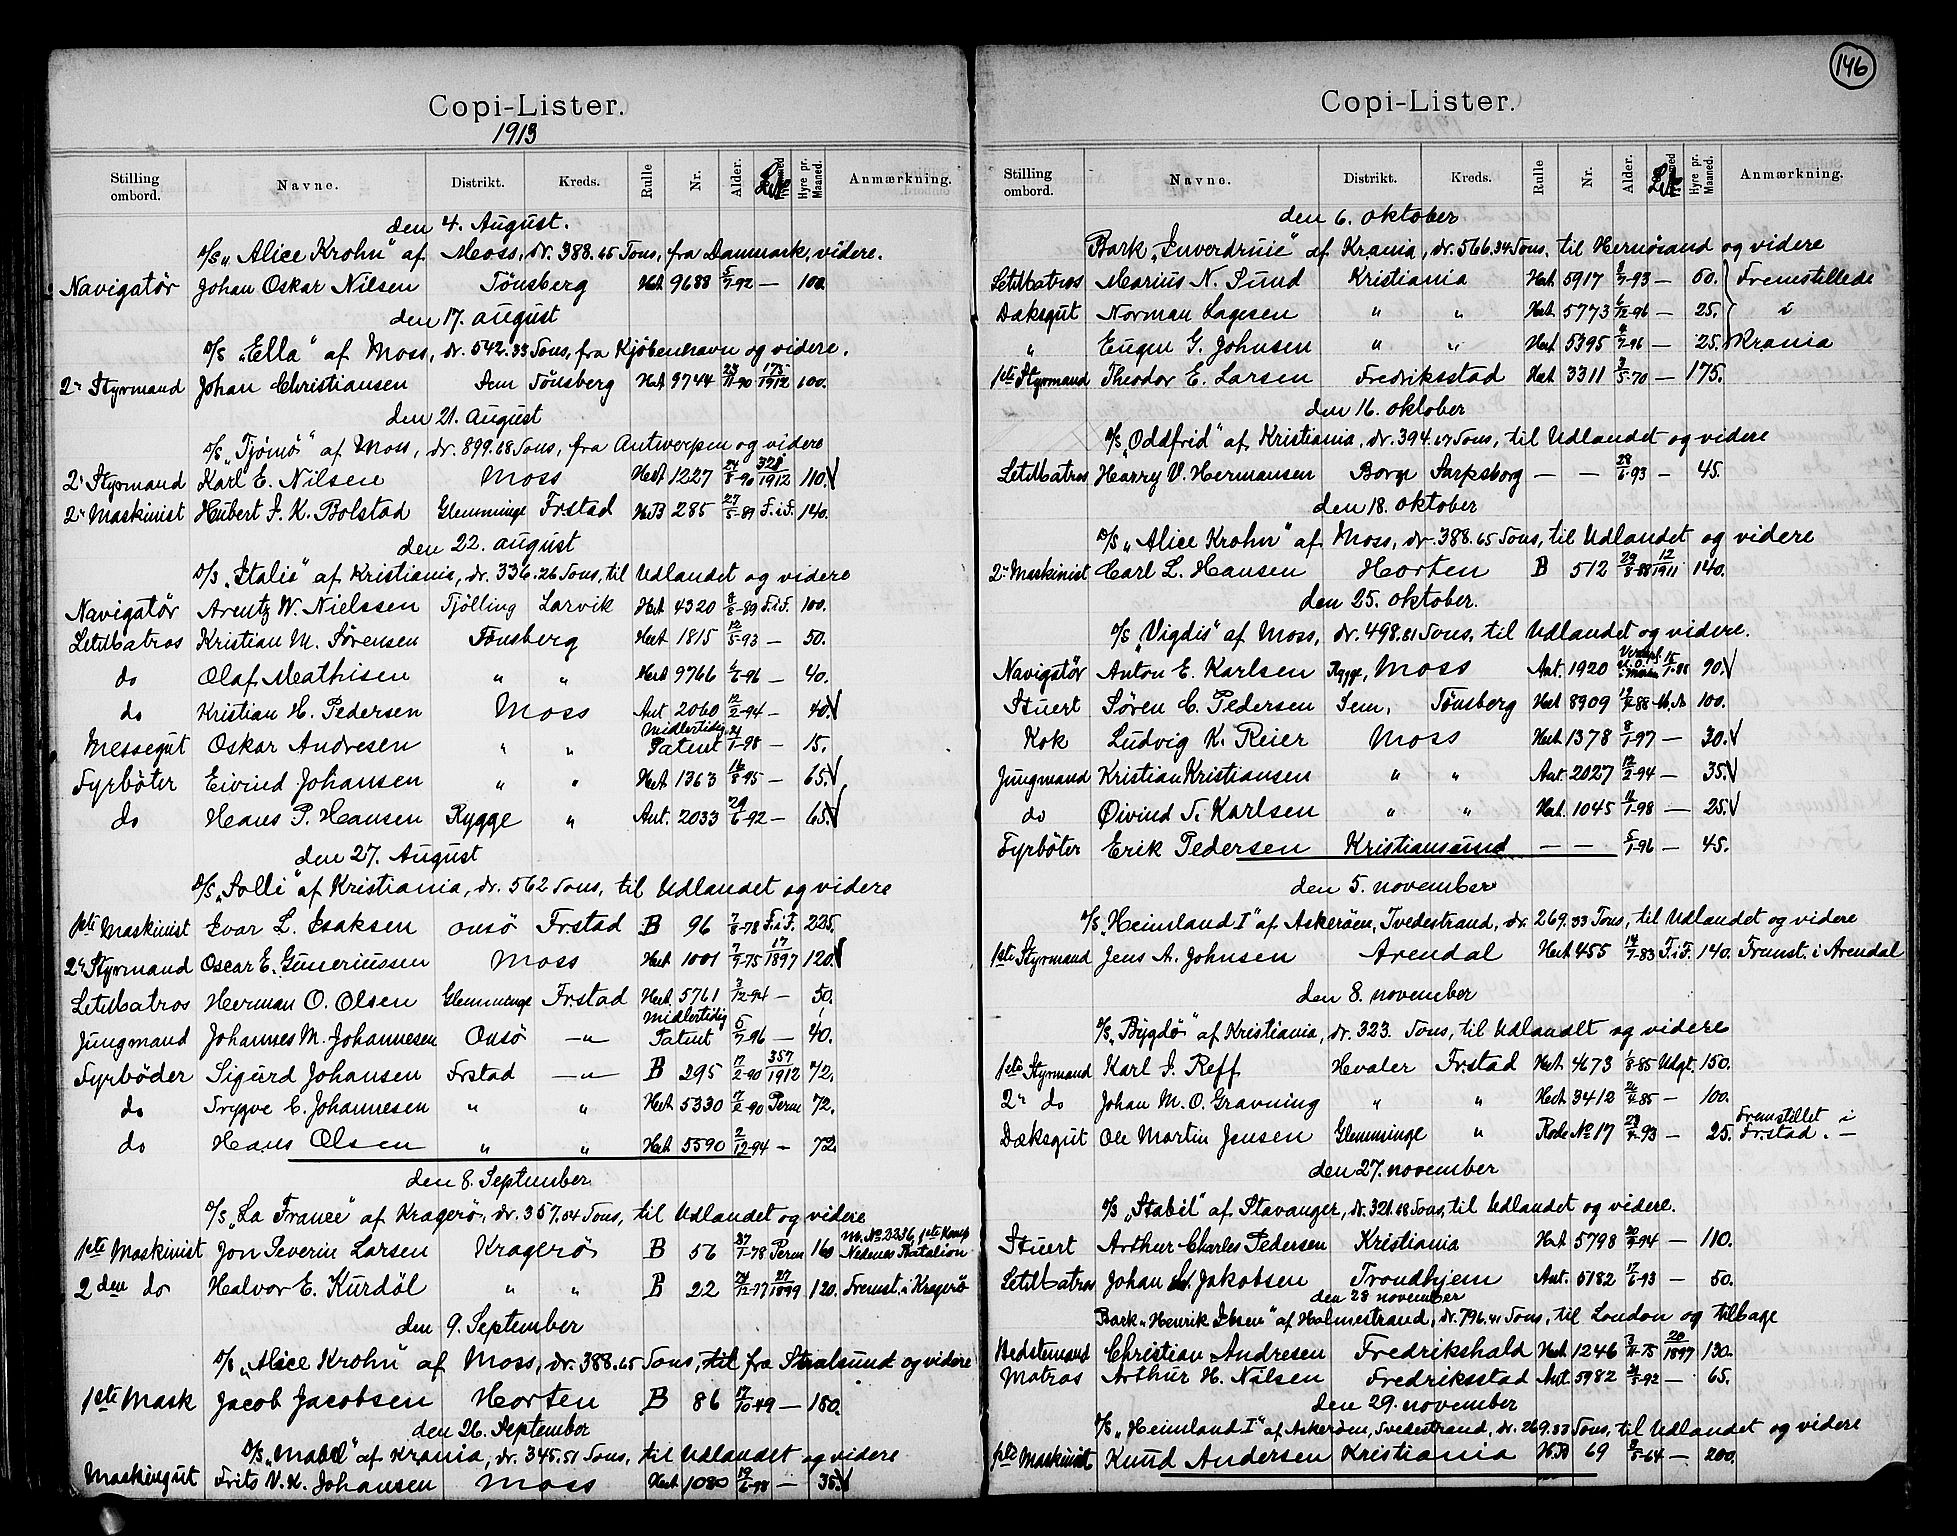 Copi-Lister.
1913
Stilling ombord. Navne. Distrikt. Kreds. Rulle Nr. Alder. Hyre pr. Maaned. Anmærkning.
den 4. August.
D/S „Alice Krohn" af Moss, dr. 388.65 Tons, fra Danmark, videre.
Navigatør Johan Oskar Nilsen Tönsberg Hvt 9688 5/7-92 — 100.
den 17. august
D/S „Ella" af Moss, dr. 542.33 Tons, fra Kjöbenhavn og videre.
2n Styrmand Johan Christiansen Sem Tönsberg Hvt 9744 23/11-90 175/1912 100.
den 21. August
D/S „Tjömö" af Moss, dr. 899.68 Tons, fra Antwerpen og videre
2n Styrmand Karl E. Nilsen Moss Hvt 1227 24/8-90 328/1912 110.
2n Maskinist Hubert J. K. Bolstad Glemminge Frstad H.B 285 27/5-89 F.i.F. 140.
den 22. august
D/S „Italia" af Kristiania, dr. 336.26 Tons, til Udlandet og videre
Navigatør Arentz W. Nielssen Tjölling Larvik Hvt 4320 8/8-89 F.i.F. 100.
LetMatros Kristian M. Sörensen Tönsberg Hvt 1815 12/5-93 — 50.
do Olaf Mathisen " " Hvt 9766 6/6-96 — 40.
do Kristian H. Pedersen Moss Ant. 2060 12/2-94 — 40.
Messegut Oskar Andresen " " Midlertidig Patent 21/1-98 — 15.
Fyrböter Eivind Johansen " " Hvt 1363 16/8-95 — 65.
do Hans P. Hansen Rygge " Ant. 2033 29/6-92 — 65.
den 27. August
D/S „Solli" af Kristiania, dr. 562 Tons, til Udlandet og videre
1ste Maskinist Ivar L. Isaksen Onsö Frstad B 96 7/8-78 F.i.F. 225.
2n Styrmand Oscar E. Guneriussen Moss Hvt 1001 7/9-75 17/1897 120.
LetMatros Herman O. Olsen Glemminge Frstad Hvt. 5761 3/12-94 — 50.
Jungmand Johannes M. Johannesen Onsö —"— Midlertidig Patent 5/7-96 — 40.
Fyrböder Sigurd Johansen Frstad —"— B 295 17/2-90 357/1912 72.
do Trygve C. Johannesen " " Hvt 5330 7/2-90 Perm 72.
do Hans Olsen " " Hvt. 5590 2/12-94 — 72.
den 8. September
D/S „La France" af Kragerö, dr. 357.04 Tons, til Udlandet og videre
1ste Maskinist Jon Severin Larsen Kragerö B 56 27/1-78 Perm 160 M. No 3236, 1ste Komp Nedenes Batalion
2den do Halvor E. Kurdöl " " B 22 24/12-77 27/1899 120. Fremst. i Kragerö
den 9. September
D/S „Alice Krohn" af Moss, dr. 388.65 Tons, til fra Stralsund og videre
1ste Mask Jacob Jacobsen Horten B 86 17/10-49 — 180.
den 26. September
D/S „Mabel" af Krania, dr. 345.51 Tons, til Udlandet og videre
Maskingut Frits V. K. Johansen Moss Hvt 1080 19/6-98 — 35.
146
Copi-Lister.
Stilling ombord. Navne. Distrikt. Kreds. Rulle Nr. Alder. Hyre pr. Maaned. Anmærkning.
den 6. oktober
Bark „Inverdruie" af Krania, dr. 566.34 Tons, til Hernösand og videre
LetMatros Marius N. Sund Kristiania Hvt. 5917 8/7-93 — 60. Fremstillede
Dæksgut Norman Lagesen " " Hvt. 5773 6/12-96 — 25. i
" Eugen G. Johnsen " " Hvt. 5395 4/7-96 — 25. Krania
1ste Styrmand Theodor E. Larsen Fredriksstad Hvt. 3311 3/5-70 — 175.
den 16. oktober
D/S „Oddfrid" af Kristiania, dr. 394.67 Tons, til Udlandet og videre
LetMatros Harry V. Hermansen Borge Sarpsborg — — 28/6-93 — 45.
den 18. oktober
D/S „Alice Krohn" af Moss, dr. 388.65 Tons, til Udlandet og videre
2n Maskinist Carl L. Hansen Horten B 512 29/8-88 12/1911 140.
den 25. oktober.
D/S „Vigdis" af Moss, dr. 498.81 Tons, til Udlandet og videre.
Navigatør Anton E. Karlsen Rygge, Moss Ant. 1920 15/1-86 90.
Stuert Sören C. Pedersen Sem, Tönsberg Hvt 8909 17/4-88 100.
Kok Ludvig K. Reier Moss Hvt. 1378 8/1-97 — 30.
Jungmand Kristian Kristiansen " " Ant. 2027 12/2-94 — 35.
do Øivind T. Karlsen " " Hvt. 1045 11/1-98 — 25.
Fyrböter Erik Pedersen Kristiansund — — 5/1-96 — 45.
den 5. november
D/S „Heimland I" af Askeröen, Tvedestrand, dr. 269.33 Tons, til Udlandet og videre
1ste Styrmand Jens A. Johnsen Arendal Hvt 455 14/7-83 F.i.F. 140. Fremst. i Arendal
den 8. november
D/S „Bygdö" af Kristiania, dr. 323. Tons, til Udlandet og videre
1ste Styrmand Karl J. Reff Hvaler Frstad Hvt. 4673 1/8-85 Udgt. 150.
2n do Johan M. O. Gravning " " Hvt 3412 21/4-85 — 100.
Dæksgut Ole Martin Jensen Glemminge " Rode No 17 23/4-93 — 25. Fremstillet i Frstad. —
den 27. november
D/S „Stabil" af Stavanger, dr. 321.68 Tons, til Udlandet og videre.
Stuert Arthur Charles Pedersen Kristiania Hvt 5798 30/9-94 — 110.
LetMatros Johan Jakobsen Trondhjem Ant. 5182 17/6-93 — 50.
den 28 november
Bark „Henrik Ibsen" af Holmestrand, dr. 796.41 Tons, til London og tilbage
Bedstemand Christian Andresen Fredrikshald Hvt 1246 3/11-75 20/1897 130.
Matros Arthur H. Nilsen Fredriksstad Ant. 5982 21/5-92 — 65.
den 29. november
D/S „Heimland I" af Askeröen, Tvedestrand, dr. 269.33 Tons, til Udlandet og videre
1ste Maskinist Knud Andersen Kristiania H.B 69 8/5-64 — 200.